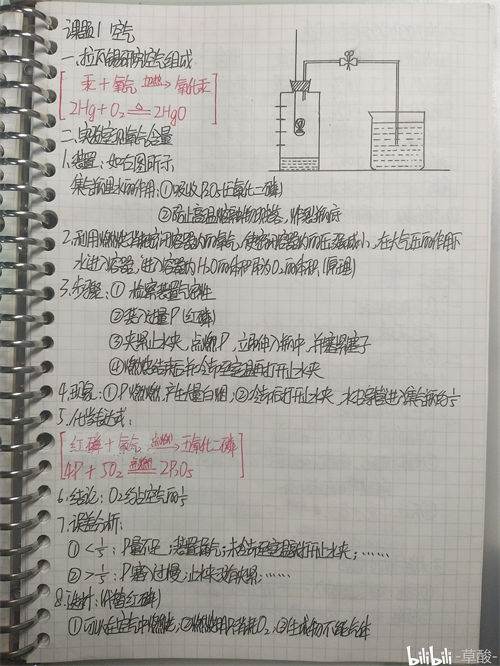 课题1 空气
一、拉瓦锡研究空气组成
汞 + 氧气 加热→ 氧化汞
2Hg + O₂ △= 2HgO
二、实验室测氧气含量
1.装置：如右图所示
集气瓶里水的作用：①吸收P₂O₅(五氧化二磷)
②防止高温熔融物溅落，炸裂瓶底
2.利用燃烧消耗密闭容器内的氧气，使密闭容器内的压强减小，在大气压的作用下
水进入容器，进入容器内H₂O的体积即为O₂的体积(原理)
3.步骤：①检察装置气密性
②装入过量P(红磷)
③夹紧止水夹，点燃P，立即伸入瓶中，并塞紧塞子
④燃烧结束后并冷却至室温再打开止水夹
4.现象：①P燃烧，产生大量白烟；②冷却后打开止水夹，水沿导管进入集气瓶约⅕
5.化学表达式：
红磷 + 氧气 点燃→ 五氧化二磷
4P + 5O₂ 点燃= 2P₂O₅
6.结论：O₂约占空气的⅕
7.误差分析：
①<⅕：P量不足；装置漏气；未冷却至室温就打开止水夹；……
②>⅕：P塞入过慢；止水夹没有夹紧；……
8.设计：(代替红磷)
①可以在空气中燃烧；②燃烧时只消耗O₂；③生成物不能是气体
bilibili -草酸-